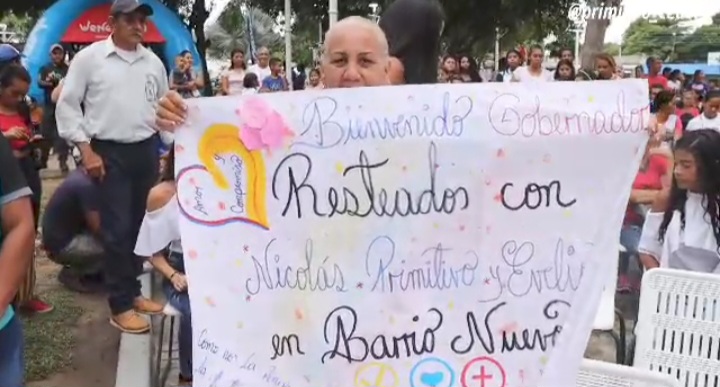 Bienvenido Gobernador
Amor y Compromiso
Resteados con
Nicolás Primitivo y Eveli
en Barrio Nuevo